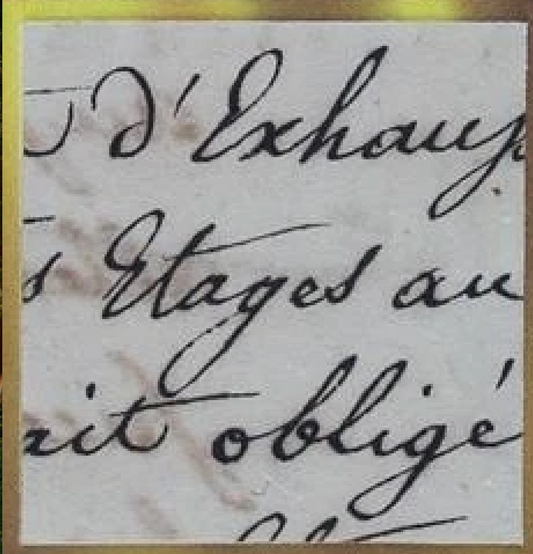 d'Exhaus
s Etages au
ait obligé